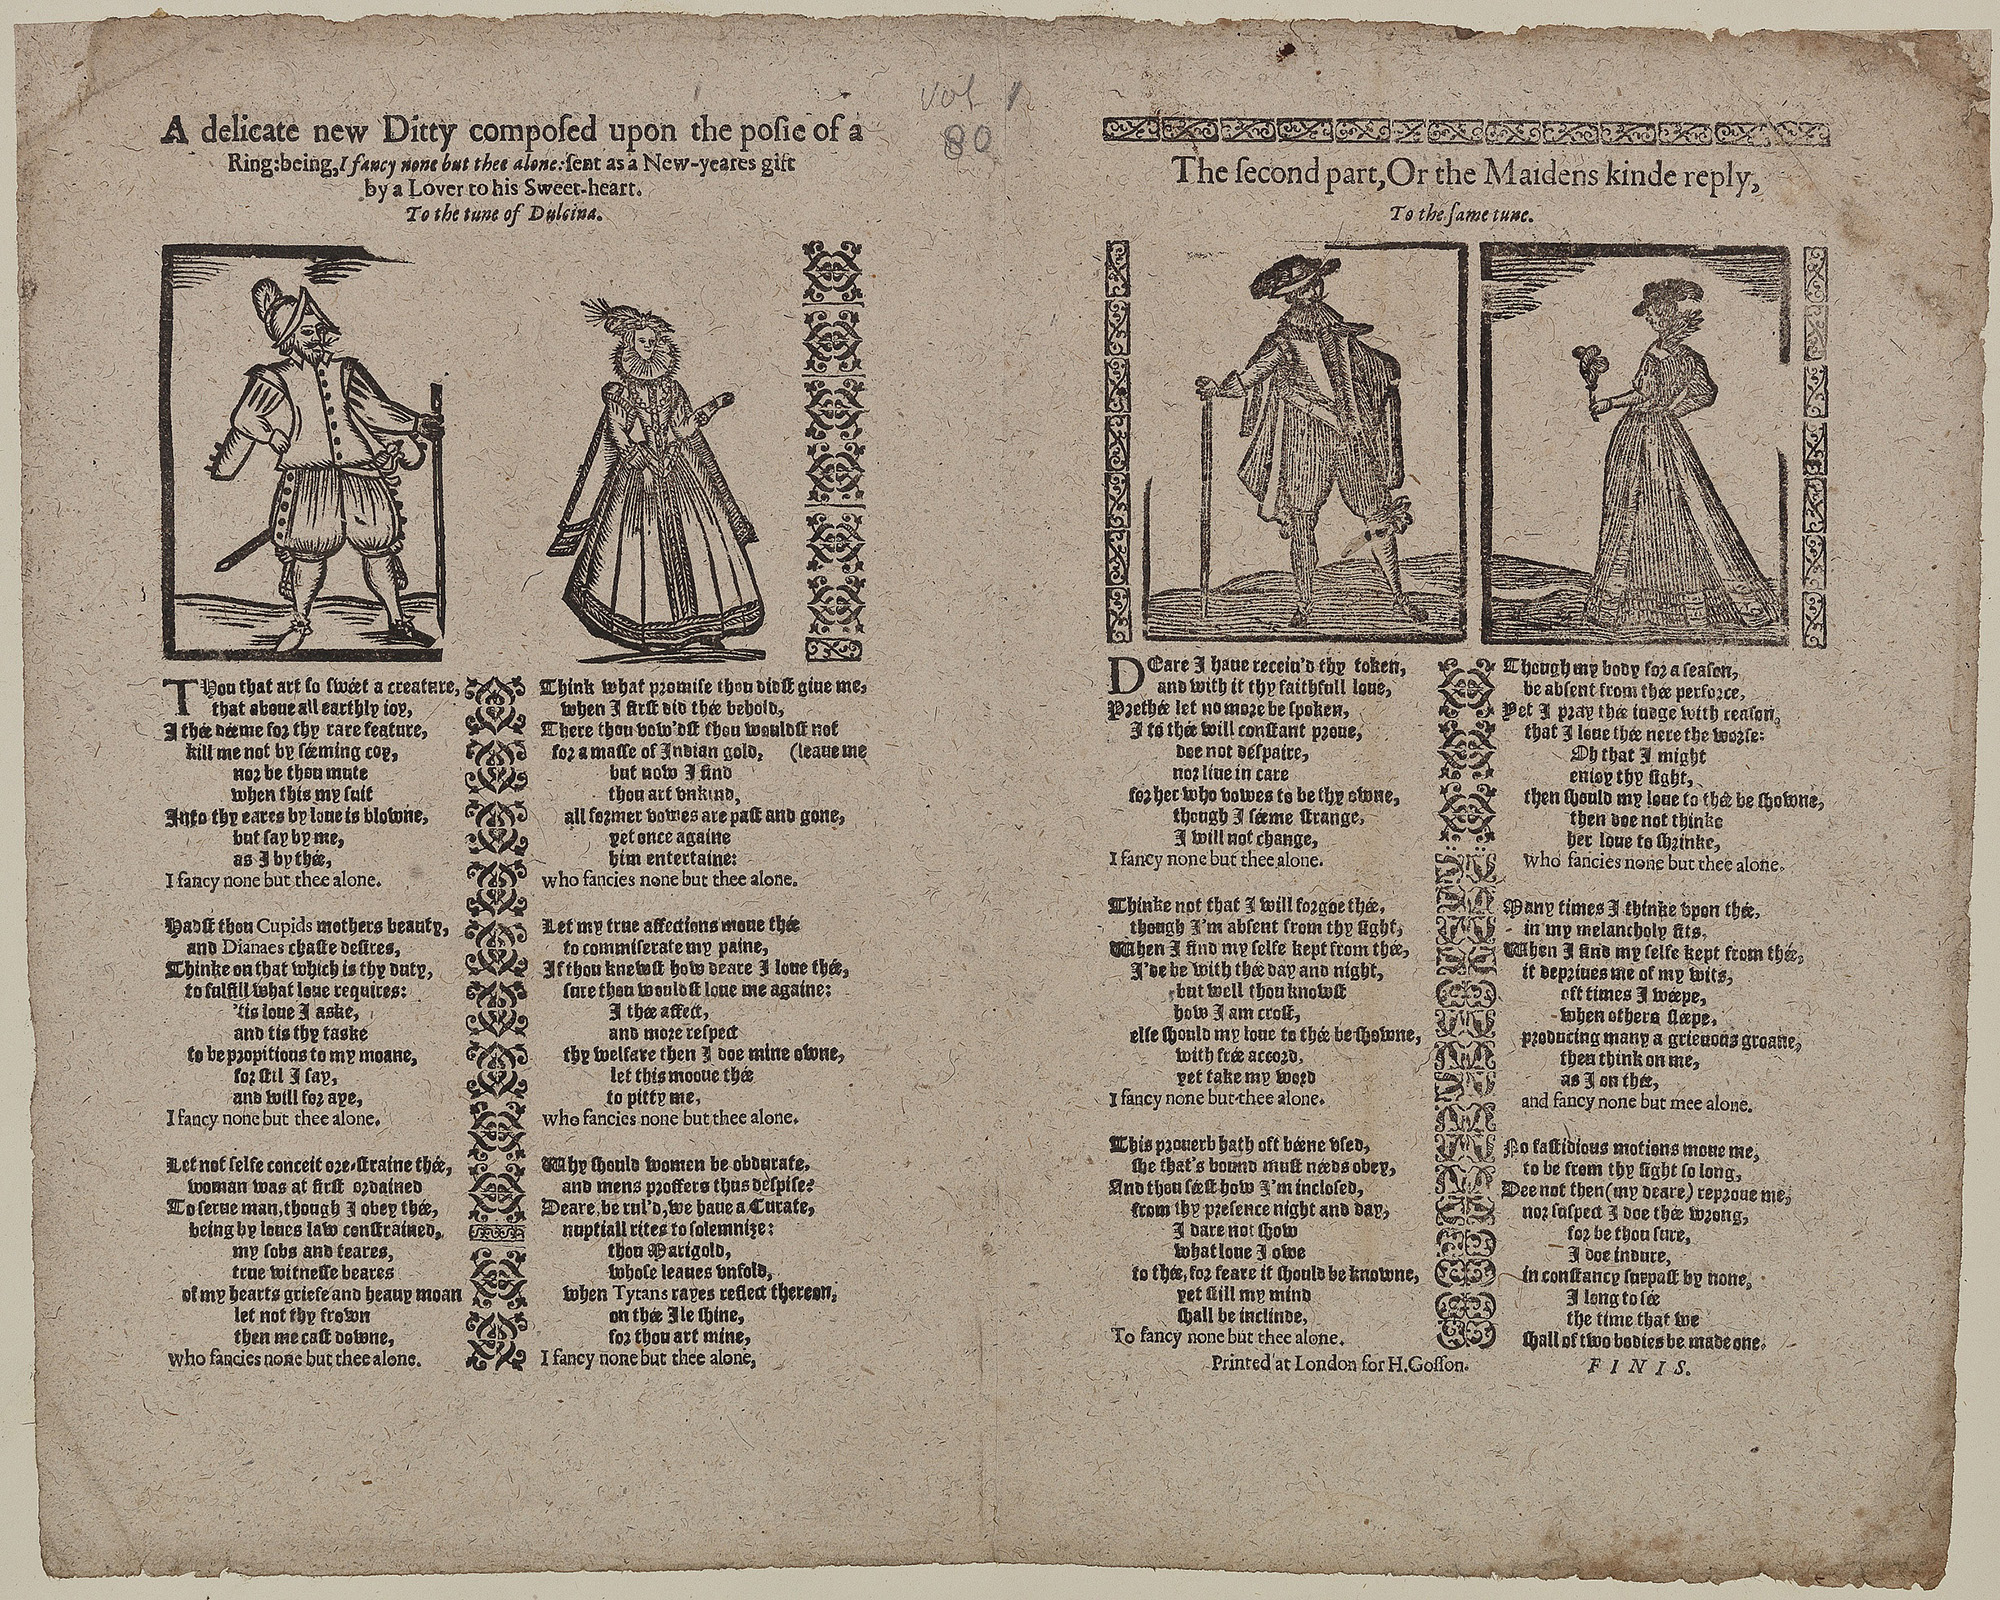 vol 1
80
A delicate new Ditty compoſed upon the poſie of a
Ring: being, I fancy none but thee alone: ſent as a New-yeares gift
by a Lover to his Sweet-heart.
To the tune of Dulcina.
THou that art ſo ſweet a creature,
that aboue all earthly ioy,
I thee deeme for thy rare feature,
kill me not by ſeeming coy,
nor be thou mute
when this my ſuit
Into thy eares by loue is blowne,
but ſay by me,
as I by thee,
I fancy none but thee alone.
Hadſt thou Cupids mothers beauty,
and Dianaes chaſte deſires,
Thinke on that which is thy duty,
to fulfill what loue requires:
'tis loue I aske,
and tis thy taske
to be propitious to my moane,
for ſtil I ſay,
and will for aye,
I fancy none but thee alone.
Let not ſelfe conceit ore-ſtraine thee,
woman was at firſt ordained
To ſerue man, though I obey thee,
being by loues law conſtrained,
my ſobs and teares,
true witneſſe beares
of my hearts griefe and heauy moan
let not thy frown
then me caſt downe,
who fancies none but thee alone.
Think what promiſe thou didſt giue me,
when I firſt did thee behold,
There thou vow'dſt thou wouldſt not
for a maſſe of Indian gold, (leaue me
but now I find
thou art vnkind,
all former vowes are paſt and gone,
yet once againe
him entertaine:
who fancies none but thee alone.
Let my true affections moue thee
to commiſerate my paine,
If thou knewſt how deare I loue thee,
ſure thou wouldſt loue me againe:
I thee affect,
and more reſpect
thy welfare then I doe mine owne,
let this mooue thee
to pitty me,
who fancies none but thee alone.
Why ſhould women be obdurate,
and mens proffers thus deſpiſe?
Deare, be rul'd, we haue a Curate,
nuptiall rites to ſolemnize:
thou Marigold,
whoſe leaues vnfold,
when Tytans rayes reflect thereon,
on thee Ile ſhine,
for thou art mine,
I fancy none but thee alone,
The ſecond part, Or the Maidens kinde reply,
To the ſame tune.
DEare I haue receiu'd thy token,
and with it thy faithfull loue,
Prethee let no more be ſpoken,
I to thee will conſtant proue,
doe not deſpaire,
nor liue in care
for her who vowes to be thy owne,
though I ſeeme ſtrange,
I will not change,
I fancy none but thee alone.
Thinke not that I will forgoe thee,
though I'm abſent from thy ſight,
When I find my ſelfe kept from thee,
I'de be with thee day and night,
but well thou knowſt
how I am croſt,
elſe ſhould my loue to thee be ſhowne,
with free accord,
yet take my word
I fancy none but thee alone.
This prouerb hath oft beene vſed,
ſhe that's bound muſt needs obey,
And thou ſeeſt how I'm incloſed,
from thy preſence night and day,
I dare not ſhow
what loue I owe
to thee, for feare it ſhould be knowne,
yet ſtill my mind
ſhall be inclinde,
To fancy none but thee alone.
Printed at London for H. Goſſon.
Though my body for a ſeaſon,
be abſent from thee perforce,
Yet I pray thee iudge with reaſon,
that I loue thee nere the worſe:
Oh that I might
enioy thy ſight,
then ſhould my loue to thee be ſhowne,
then doe not thinke
her loue to ſhrinke,
who fancies none but thee alone.
Many times I thinke vpon thee,
in my melancholy fits,
When I find my ſelfe kept from thee,
it depriues me of my wits,
oft times I weepe,
when others ſleepe,
producing many a grieuous groane,
then think on me,
as I on thee,
and fancy none but mee alone.
No faſtidious motions moue me,
to be from thy ſight ſo long,
Doe not then (my deare) reproue me,
nor ſuſpect I doe thee wrong,
for be thou ſure,
I doe indure,
in conſtancy ſurpaſt by none,
I long to ſee
the time that we
ſhall of two bodies be made one.
FINIS.